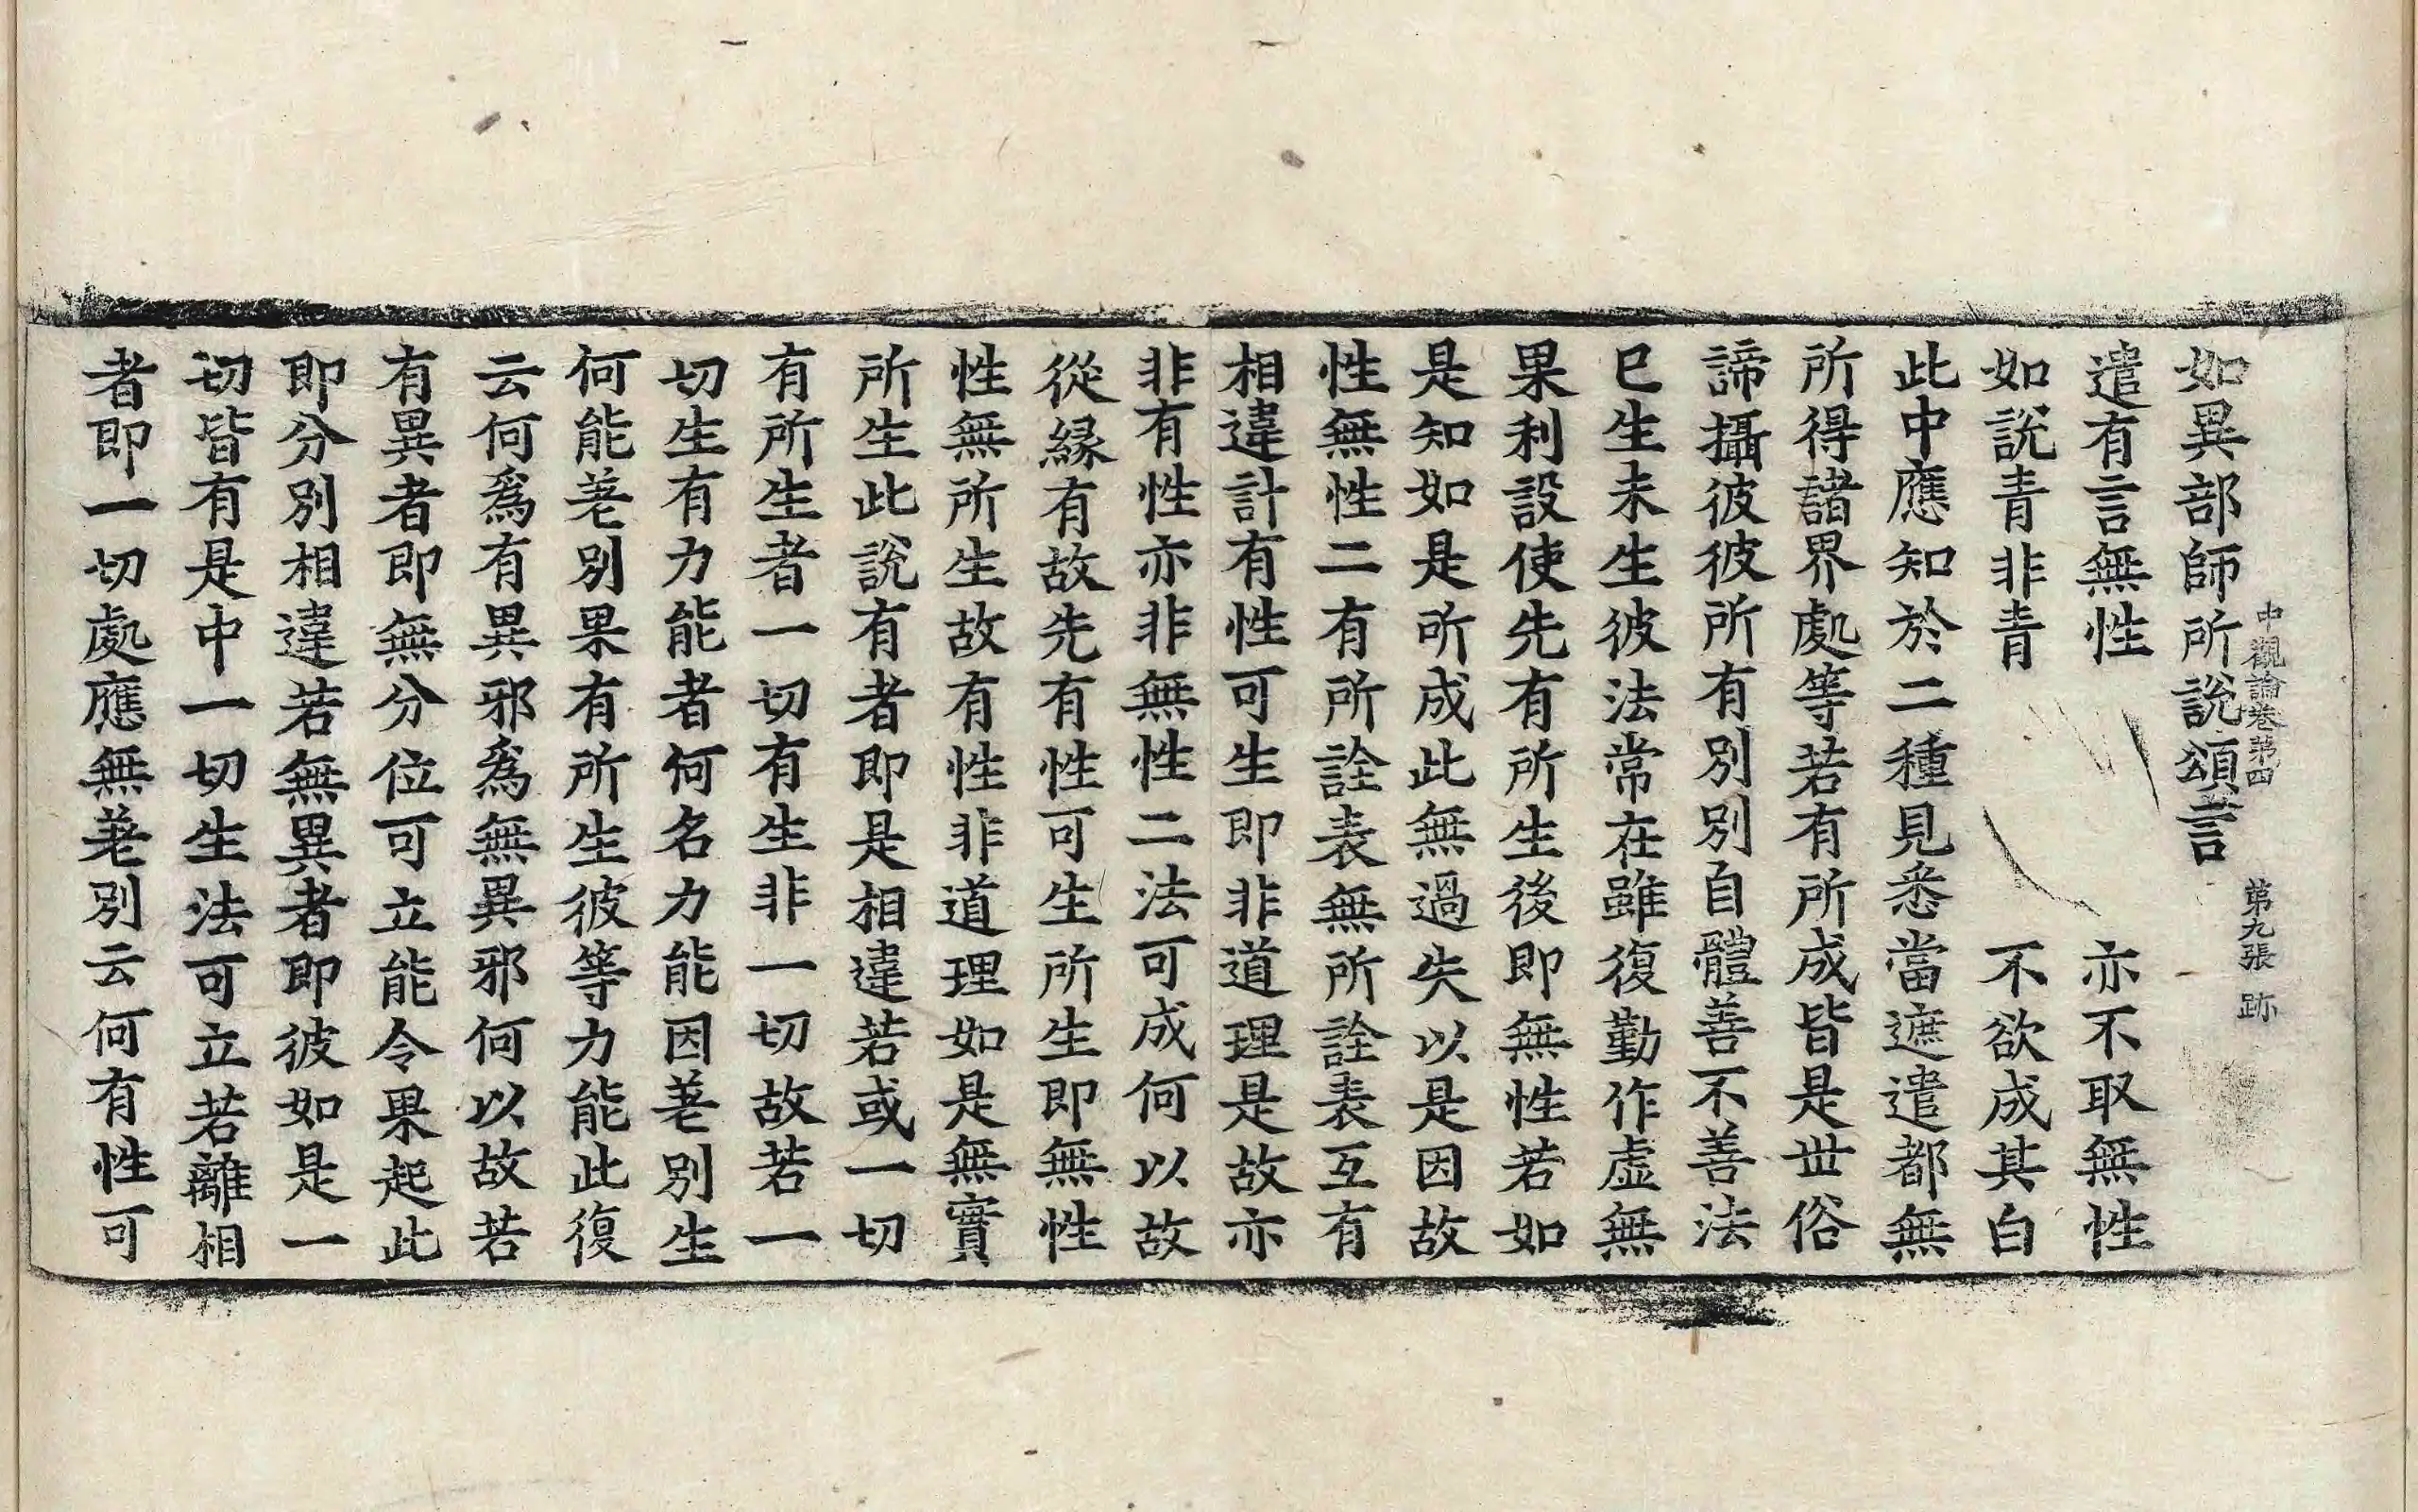 中觀論卷第四　第九張　跡
如異部師所說頌言
遣有言無性　亦不取無性
如說青非青　不欲成其白
此中應知於二種見悉當遮遣都無
所得諸界處等若有所成皆是世俗
諦攝彼彼所有別別自體善不善法
已生未生彼法常在雖復勤作虛無
果利設使先有所生後即無性若如
是知如是所成此無過失以是因故
性無性二有所詮表無所詮表互有
相違計有性可生即非道理是故亦
非有性亦非無性二法可成何以故
從緣有故先有性可生所生即無性
性無所生故有性非道理如是無實
所生此說有者即是相違若或一切
有所生者一切有生非一切故若一
切生有力能者何名力能因差別生
何能差別果有所生彼等力能此復
云何為有異邪為無異邪何以故若
有異者即無分位可立能令果起此
即分別相違若無異者即彼如是一
切皆有是中一切生法可立若離相
者即一切處應無差別云何有性可